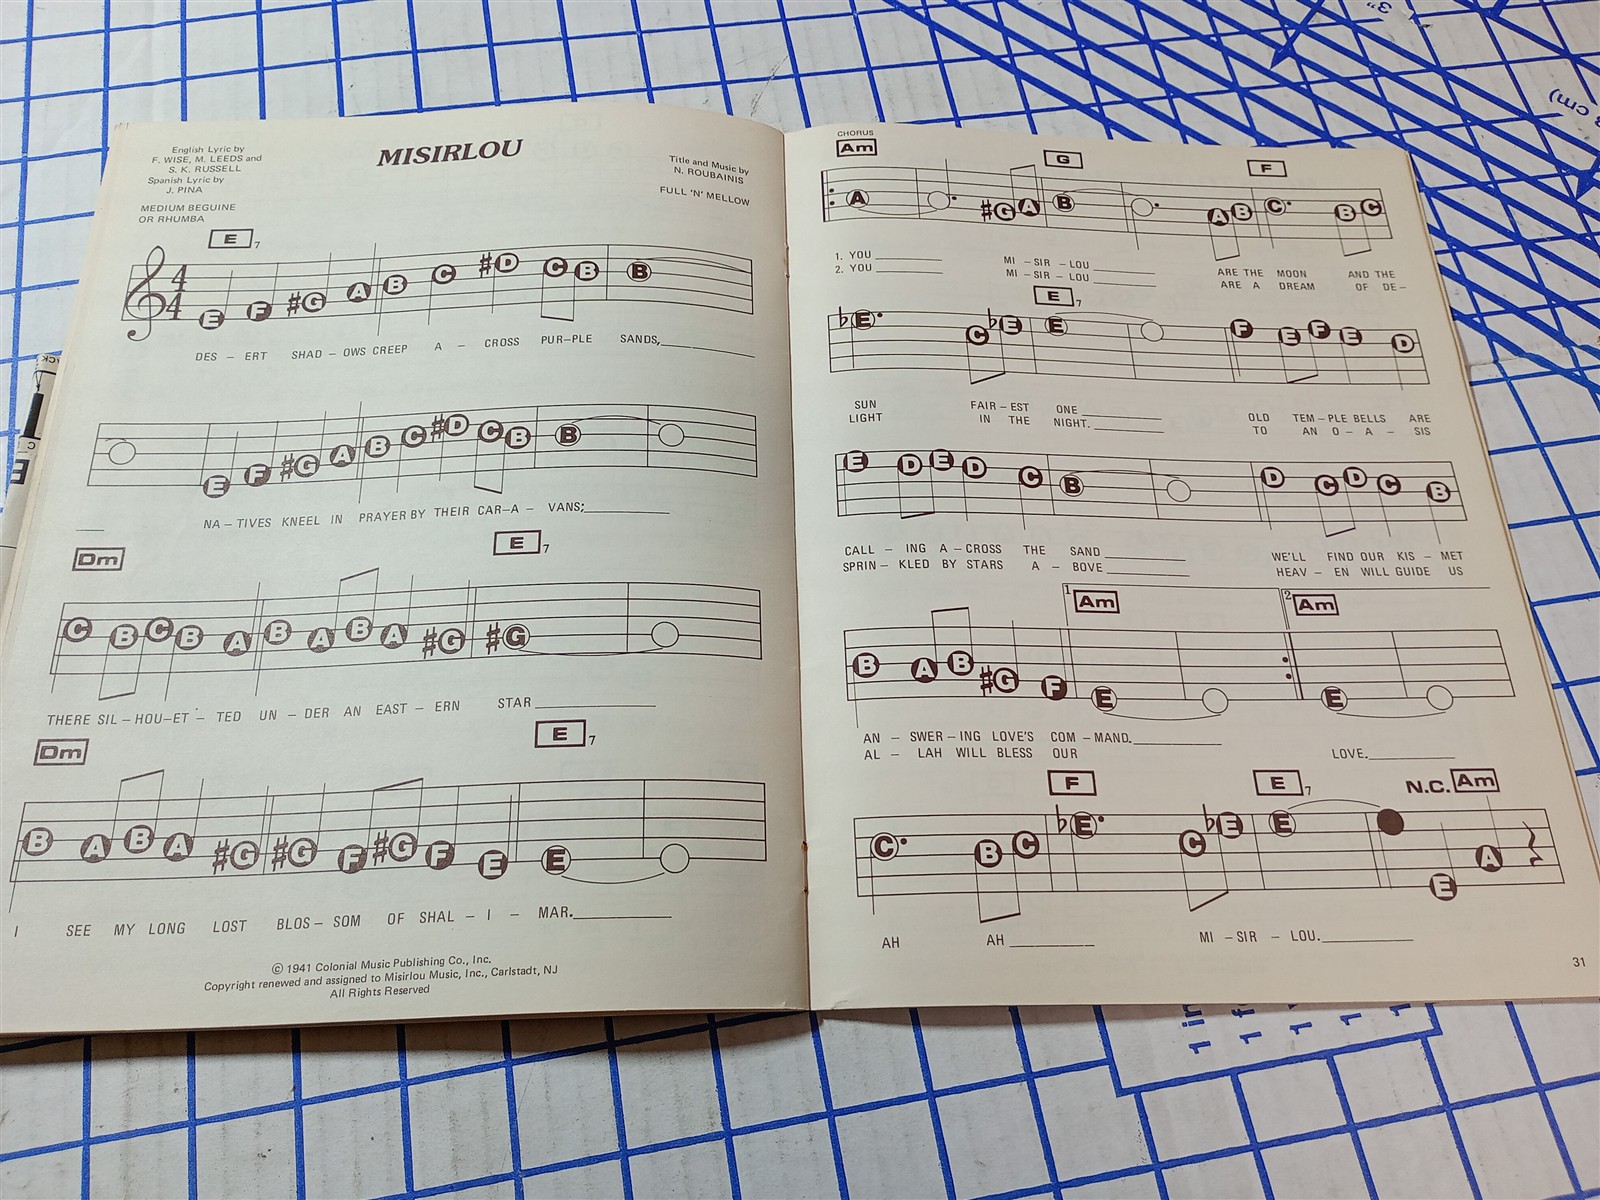 MISIRLOU
English Lyric by
F. WISE, M. LEEDS and
S. K. RUSSELL
Spanish Lyric by
J. PINA
Title and Music by
N. ROUBAINIS
FULL 'N' MELLOW
MEDIUM BEGUINE
OR RHUMBA
E7
4
4
E F #G A B C #D C B B
DES – ERT SHAD – OWS CREEP A – CROSS PUR–PLE SANDS,
E F #G A B C #D C B B
NA – TIVES KNEEL IN PRAYER BY THEIR CAR–A – VANS;
Dm E7
C B C B A B A B A #G #G
THERE SIL – HOU–ET – TED UN – DER AN EAST – ERN STAR
Dm E7
B A B A #G #G F #G F E E
I SEE MY LONG LOST BLOS – SOM OF SHAL – I – MAR.
© 1941 Colonial Music Publishing Co., Inc.
Copyright renewed and assigned to Misirlou Music, Inc., Carlstadt, NJ
All Rights Reserved
CHORUS
Am G F
A #G A B A B C B C
1. YOU MI – SIR – LOU ARE THE MOON AND THE
2. YOU MI – SIR – LOU ARE A DREAM OF DE –
E7
♭E C ♭E E F E F E D
SUN FAIR – EST ONE OLD TEM – PLE BELLS ARE
LIGHT IN THE NIGHT. TO AN O – A – SIS
E D E D C B D C D C B
CALL – ING A – CROSS THE SAND WE'LL FIND OUR KIS – MET
SPRIN – KLED BY STARS A – BOVE HEAV – EN WILL GUIDE US
1 Am 2 Am
B A B #G F E E
AN – SWER – ING LOVE'S COM – MAND.
AL – LAH WILL BLESS OUR LOVE.
F E7 N.C. Am
C B C ♭E C ♭E E E A
AH AH MI – SIR – LOU.
31
3"
1 in